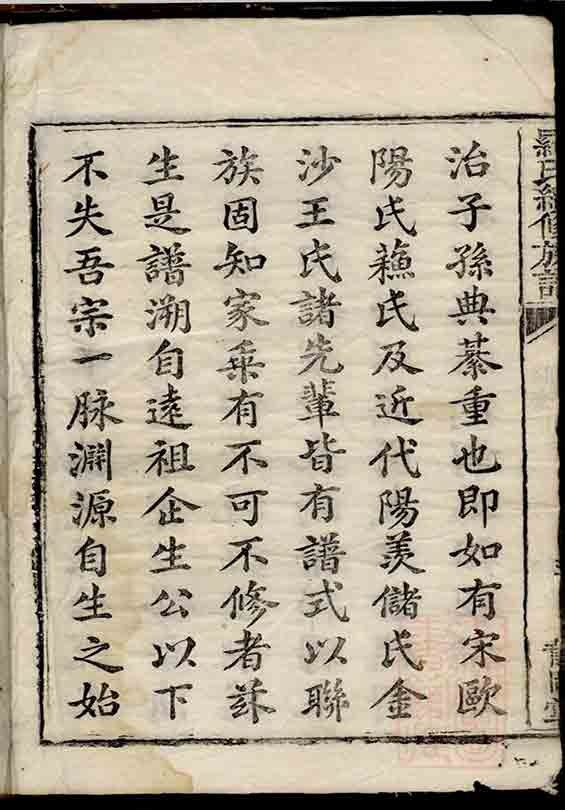 羅氏續修族譜
治子孫典綦重也即如有宋歐
陽氏蘓氏及近代陽羨儲氏金
沙王氏諸先輩皆有譜式以聯
族固知家乗有不可不修者茲
生是譜溯自逺祖企生公以下
不失吾宗一脉淵源自生之始